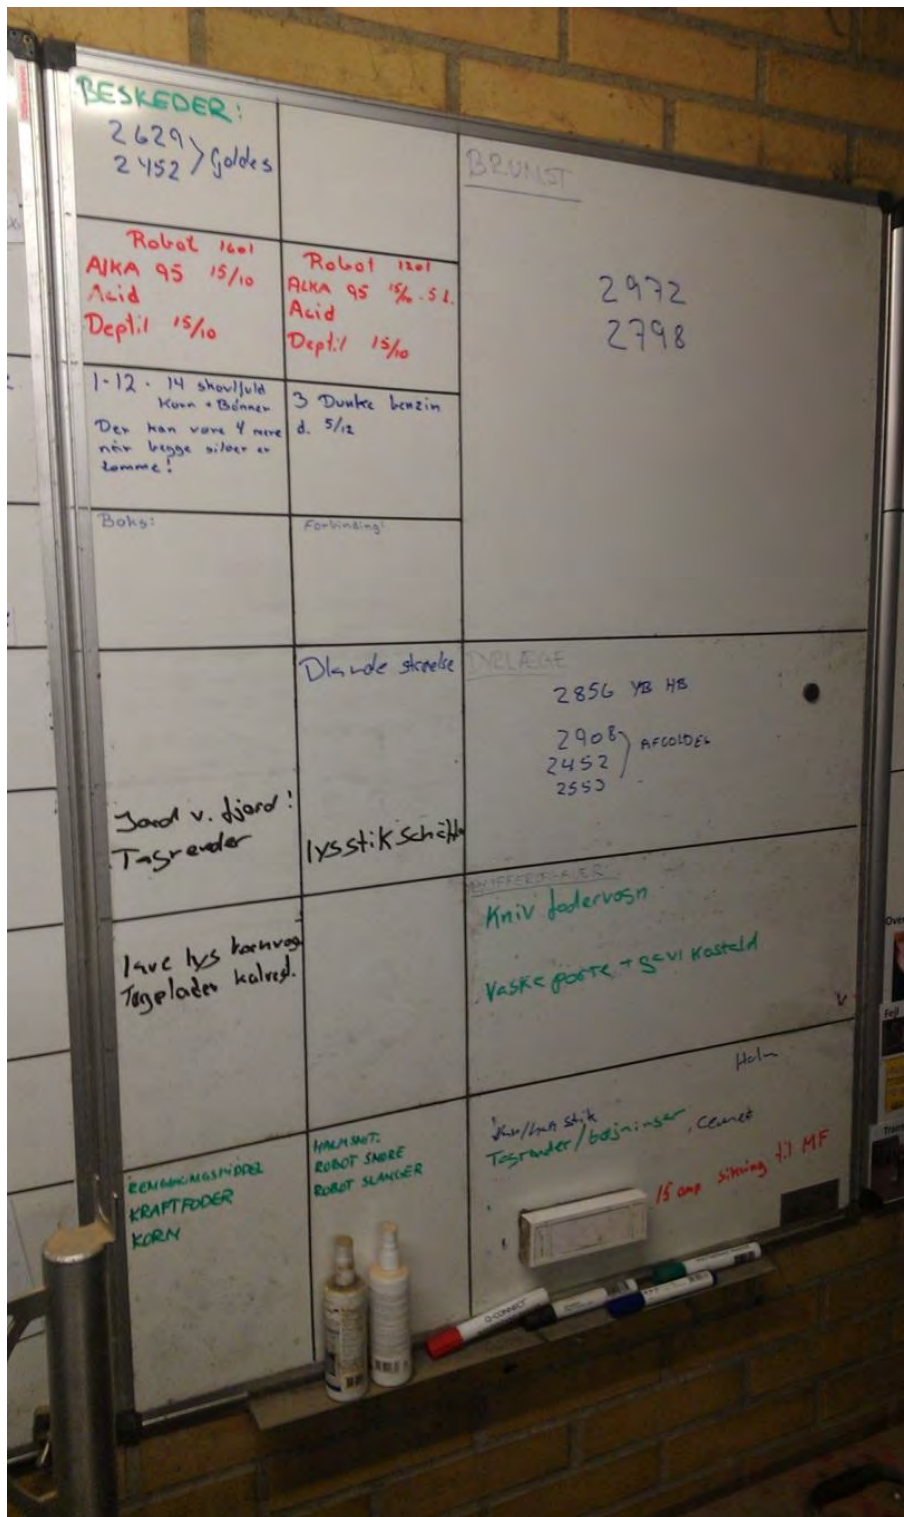 BESKEDER:
2629
2452 Goldes
Robot 1601
AlKA 95 15/10
Acid
Deptil 15/10
Robot 1201
ALKA 95 15/10 - 5 l.
Acid
Deptil 15/10
1-12 - 14 skovlfuld
Korn + Bønner
Der kan være 4 mere
når begge siloer er
tomme!
3 Dunke benzin
d. 5/12
Boks:
Forbinding:
BRUNST
2972
2798
Blande
DYRLÆGE
2856 YB HB
2908
2452 AFGOLDES
2550
Jord v. fjord!
Tagrender
lysstik
lave lys kornvogn
Tagplader kalvest.
Kniv fodervogn
Vaske porte + gavl kostald
V
Halm
stik
Tagrender/bøjninger
. Cemet
15 amp sikring til MF
RENGØRINGSMIDDEL
KRAFTFODER
KORN
HALMSNIT:
ROBOT SNØRE
ROBOT SLANGER
Q-CONNECT
Over
Fejl